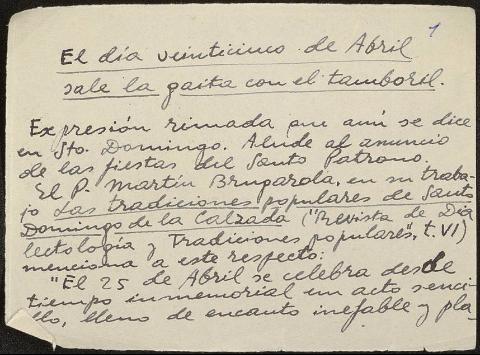 1
El día veinticinco de Abril
sale la gaita con el tamboril.
Expresión rimada que aún se dice
en Sto. Domingo. Alude al anuncio
de las fiestas del Santo Patrono.
El P. Martín Brugarola, en su traba-
jo Las tradiciones populares de Santo
Domingo de la Calzada ("Revista de Dia
lectología y Tradiciones populares", t. VI)
menciona a este respecto:
"El 25 de Abril se celebra desde
tiempo inmemorial un acto senci-
llo, lleno de encanto inefable y pla-